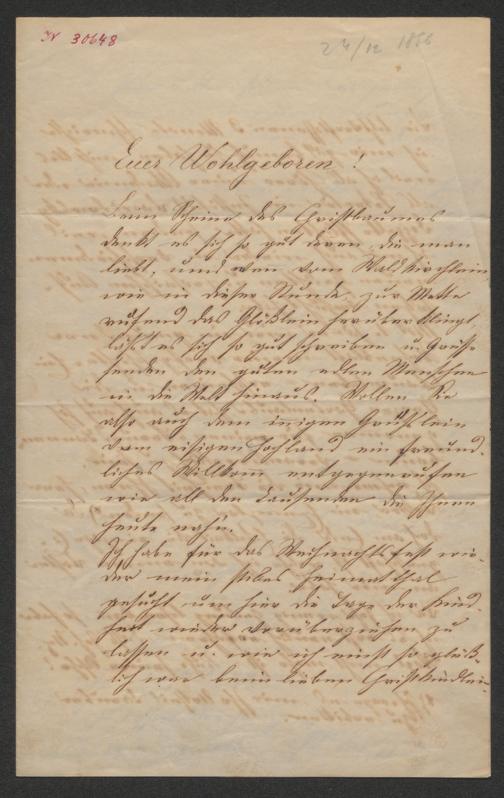 IN 30648
24/12 1866
Euer Wohlgeboren!
Beim Scheine des Christbaumes
denkt es sich so gut derer, die man
liebt, und wen vom Waldkirchlein
wie in dieser Stunde zur Mette
rufend das Glöklein herüberklingt,
läßt es sich so gut schreiben u. Grüße
senden den guten edlen Menschen
in die Welt hinaus. Wollen Sie
also auch dem innigen Grüßlein
vom eisigen Hochland ein freund-
liches Willkom entgegenrufen
wie all den Tausenden die Ihnen
heute nah'n.
Ich habe für das Weihnachtsfest wie-
der mein stilles Heimatthal
gesucht um hier die Tage der Kind-
heit wieder vorüberziehen zu
lassen u. wie ich einst so glük-
lich war beim lieben Christkindlein